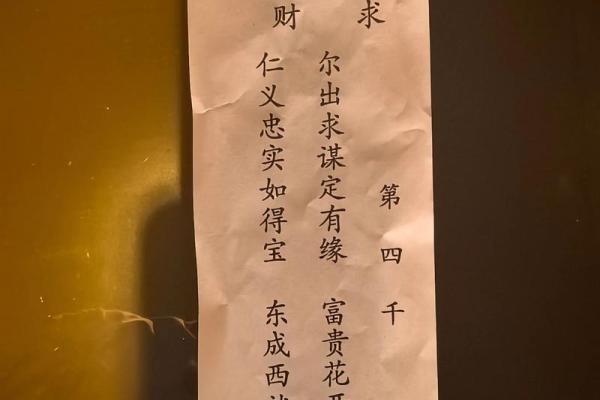 求财
第四千
尔出求谋定有缘 富贵花
仁义忠实如得宝 东成西